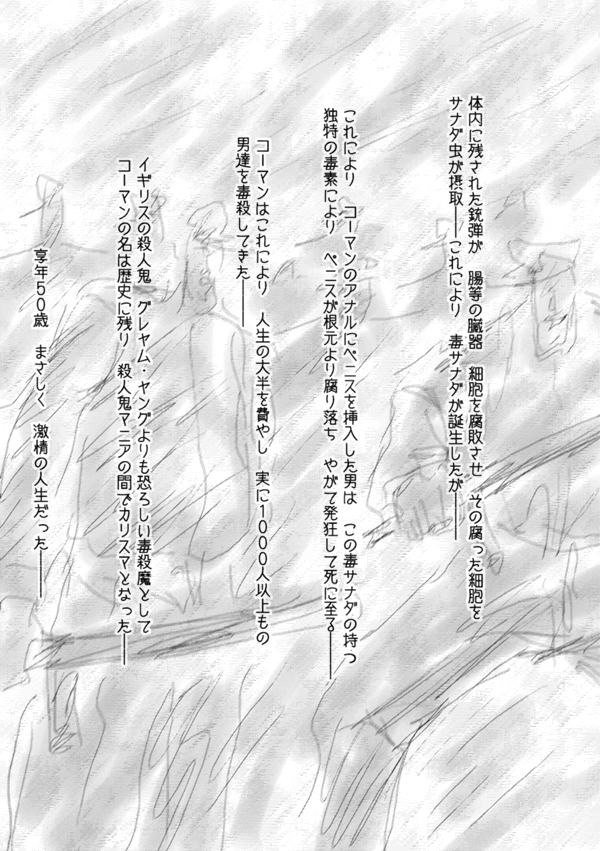 体内に残された銃弾が　腸等の臓器　細胞を腐敗させ　その腐った細胞を
サナダ虫が摂取――これにより　毒サナダが誕生したが――
これにより　コーマンのアナルにペニスを挿入した男は　この毒サナダの持つ
独特の毒素により　ペニスが根元より腐り落ち　やがて発狂して死に至る――
コーマンはこれにより　人生の大半を費やし　実に1000人以上もの
男達を毒殺してきた――
イギリスの殺人鬼　グレヤム・ヤングよりも恐ろしい毒殺魔として
コーマンの名は歴史に残り　殺人鬼マニアの間でカリスマとなった――
享年50歳　まさしく　激情の人生だった――